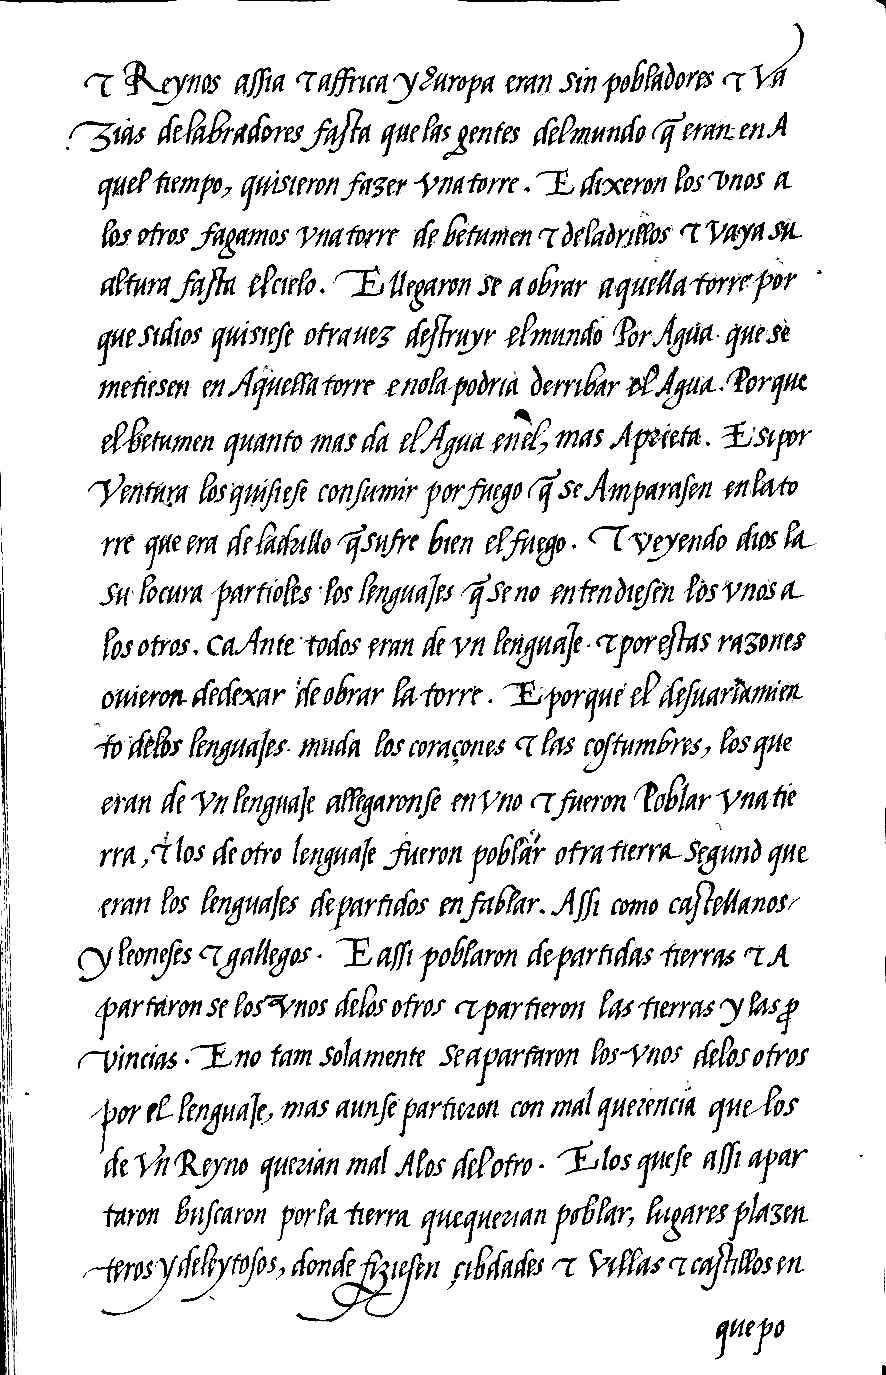 ⁊ Reynos assia ⁊ affrica y Europa eran sin pobladores ⁊ Va
zias de labradores fasta que las gentes del mundo q̃ eran en A
quel tiempo, quisieron fazer vna torre. E dixeron los vnos a
los otros fagamos vna torre de betumen ⁊ de ladrillos ⁊ vaya su
altura fasta el cielo. E llegaron se a obrar aquella torre por
que si dios quisiese otra uez destruyr el mundo Por Agua que se
metiesen en Aquella torre e no la podria derribar el Agua. Porque
el betumen quanto mas da el Agua en el, mas Aprieta. E si por
Ventura los quisiese consumir por fuego q̃ se Amparasen en la to
rre que era de ladrillo q̃ sufre bien el fuego. ⁊ veyendo dios la
su locura partioles los lenguajes q̃ se no entendiesen los vnos a
los otros. Ca Ante todos eran de vn lenguaje ⁊ por estas razones
ouieron de dexar de obrar la torre. E porque el desuariamien
to de los lenguajes muda los coraçones ⁊ las costumbres, los que
eran de vn lenguaje allegaronse en vno ⁊ fueron Poblar vna tie
rra, ⁊ los de otro lenguaje fueron poblar otra tierra segund que
eran los lenguajes departidos en fablar. Assi como castellanos
y leoneses ⁊ gallegos. E assi poblaron departidas tierras ⁊ A
partaron se los vnos de los otros ⁊ partieron las tierras y las ꝓ
vincias. E no tam solamente se apartaron los vnos de los otros
por el lenguaje, mas aun se partieron con mal querencia que los
de vn Reyno querian mal A los del otro. E los que se assi apar
taron buscaron por la tierra que querian poblar, lugares plazen
teros y deleytosos, donde fiziesen çibdades ⁊ villas ⁊ castillos en
que po